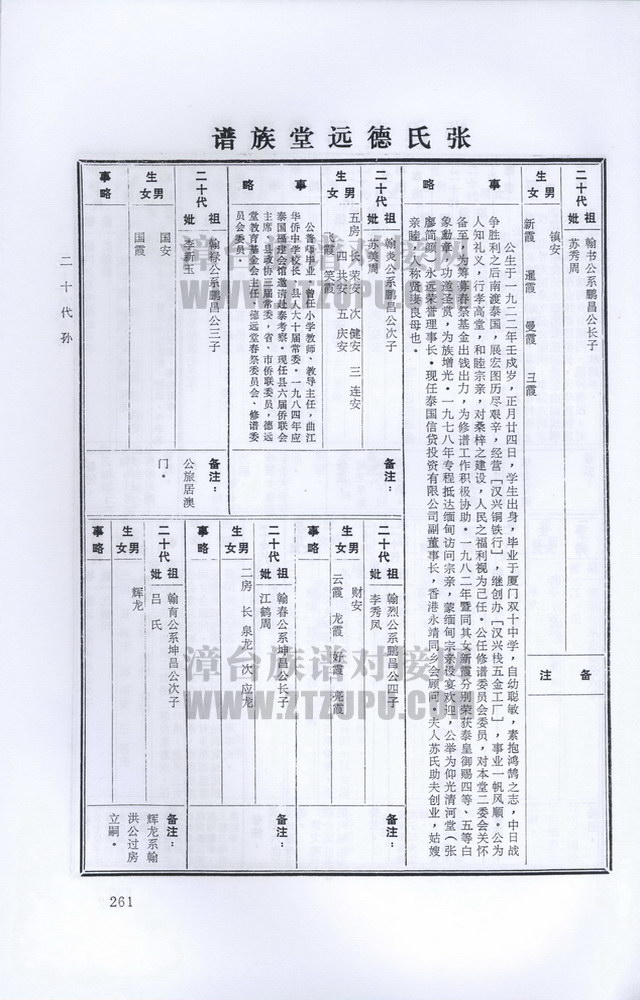 张氏德远堂族谱
二十代
祖 翰书公系鹏昌公长子
妣 苏秀周
生
男 镇安
女 新霞 暹霞 曼霞 玨霞
事略
公生于一九二二年壬戌岁，正月廿四日，学生出身，毕业于厦门双十中学，自幼聪敏，素抱鸿鹄之志，中日战
争胜利之后南渡泰国，展宏图历尽艰辛，经营［汉兴铜铁行］，继创办［汉兴栈五金工厂］，事业一帆风顺。公为
人知礼义，行孝高堂，和睦宗亲，对桑梓之建设，人民之福利视为己任。公任修谱委员会委员，对本堂二委会关怀
备至，为筹募春祭基金出钱出力，为修谱工作积极协助。一九八二年暨同其女新霞分别荣获泰皇御赐四等、五等白
象勋章，功遂圣贲，为族增光。一九七八年专程抵达缅甸访问宗亲，蒙缅甸宗亲设宴欢迎，公举为仰光清河堂（张
廖简颜）永远荣誉理事长。现任泰国信贷投资有限公司副董事长，香港永靖同乡会顾问。夫人苏氏助夫创业，姑嫂
亲睦，人称贤淑良母也。
备注
二十代
祖 翰炎公系鹏昌公次子
妣 苏美周
生
男 五房 长荣安 次健安 三连安
四共安 五庆安
女 飞霞 笑霞
事略
公普师毕业，曾任小学教师、教导主任，曲江
华侨中学校长，县人大十届常委。一九八四年应
泰国福建会馆邀请赴泰考察。现任县六届侨联会
主席，县政协三届常委，省、市侨联委员，德远
堂教育基金会主任，德远堂春祭委员会、修谱委
员会委员。
二十代
祖 翰禄公系鹏昌公三子
妣 李新玉
生
男 国安
女 国霞
事略
备注：
公旅居澳
门。
二十代
祖 翰烈公系鹏昌公四子
妣 李秀凤
生
男 财安
女 云霞 龙霞 妤霞 亮霞
事略
备注：
二十代
祖 翰春公系坤昌公长子
妣 江鹤周
生
男 二房 长泉龙 次应龙
女
事略
备注：
二十代
祖 翰育公系坤昌公次子
妣 吕氏
生
男 辉龙
女
事略
备注：
辉龙系翰
洪公过房
立嗣。
二十代孙
261
漳台族谱对接网
WWW.ZTZUPU.COM
漳台族谱对接网
WWW.ZTZUPU.COM